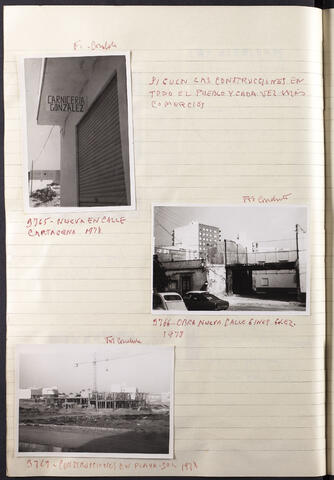 SIGUEN LAS CONSTRUCCIONES EN
TODO EL PUEBLO Y CADA VEZ MAS
COMERCIOS
CARNICERIA
GONZALEZ
9765 - NUEVA EN CALLE
CARTAGENA 1978
9766 - OBRA NUEVA CALLE GINES
1978
9767 - CONSTRUCCIONES EN PLAYA-SOL 1978